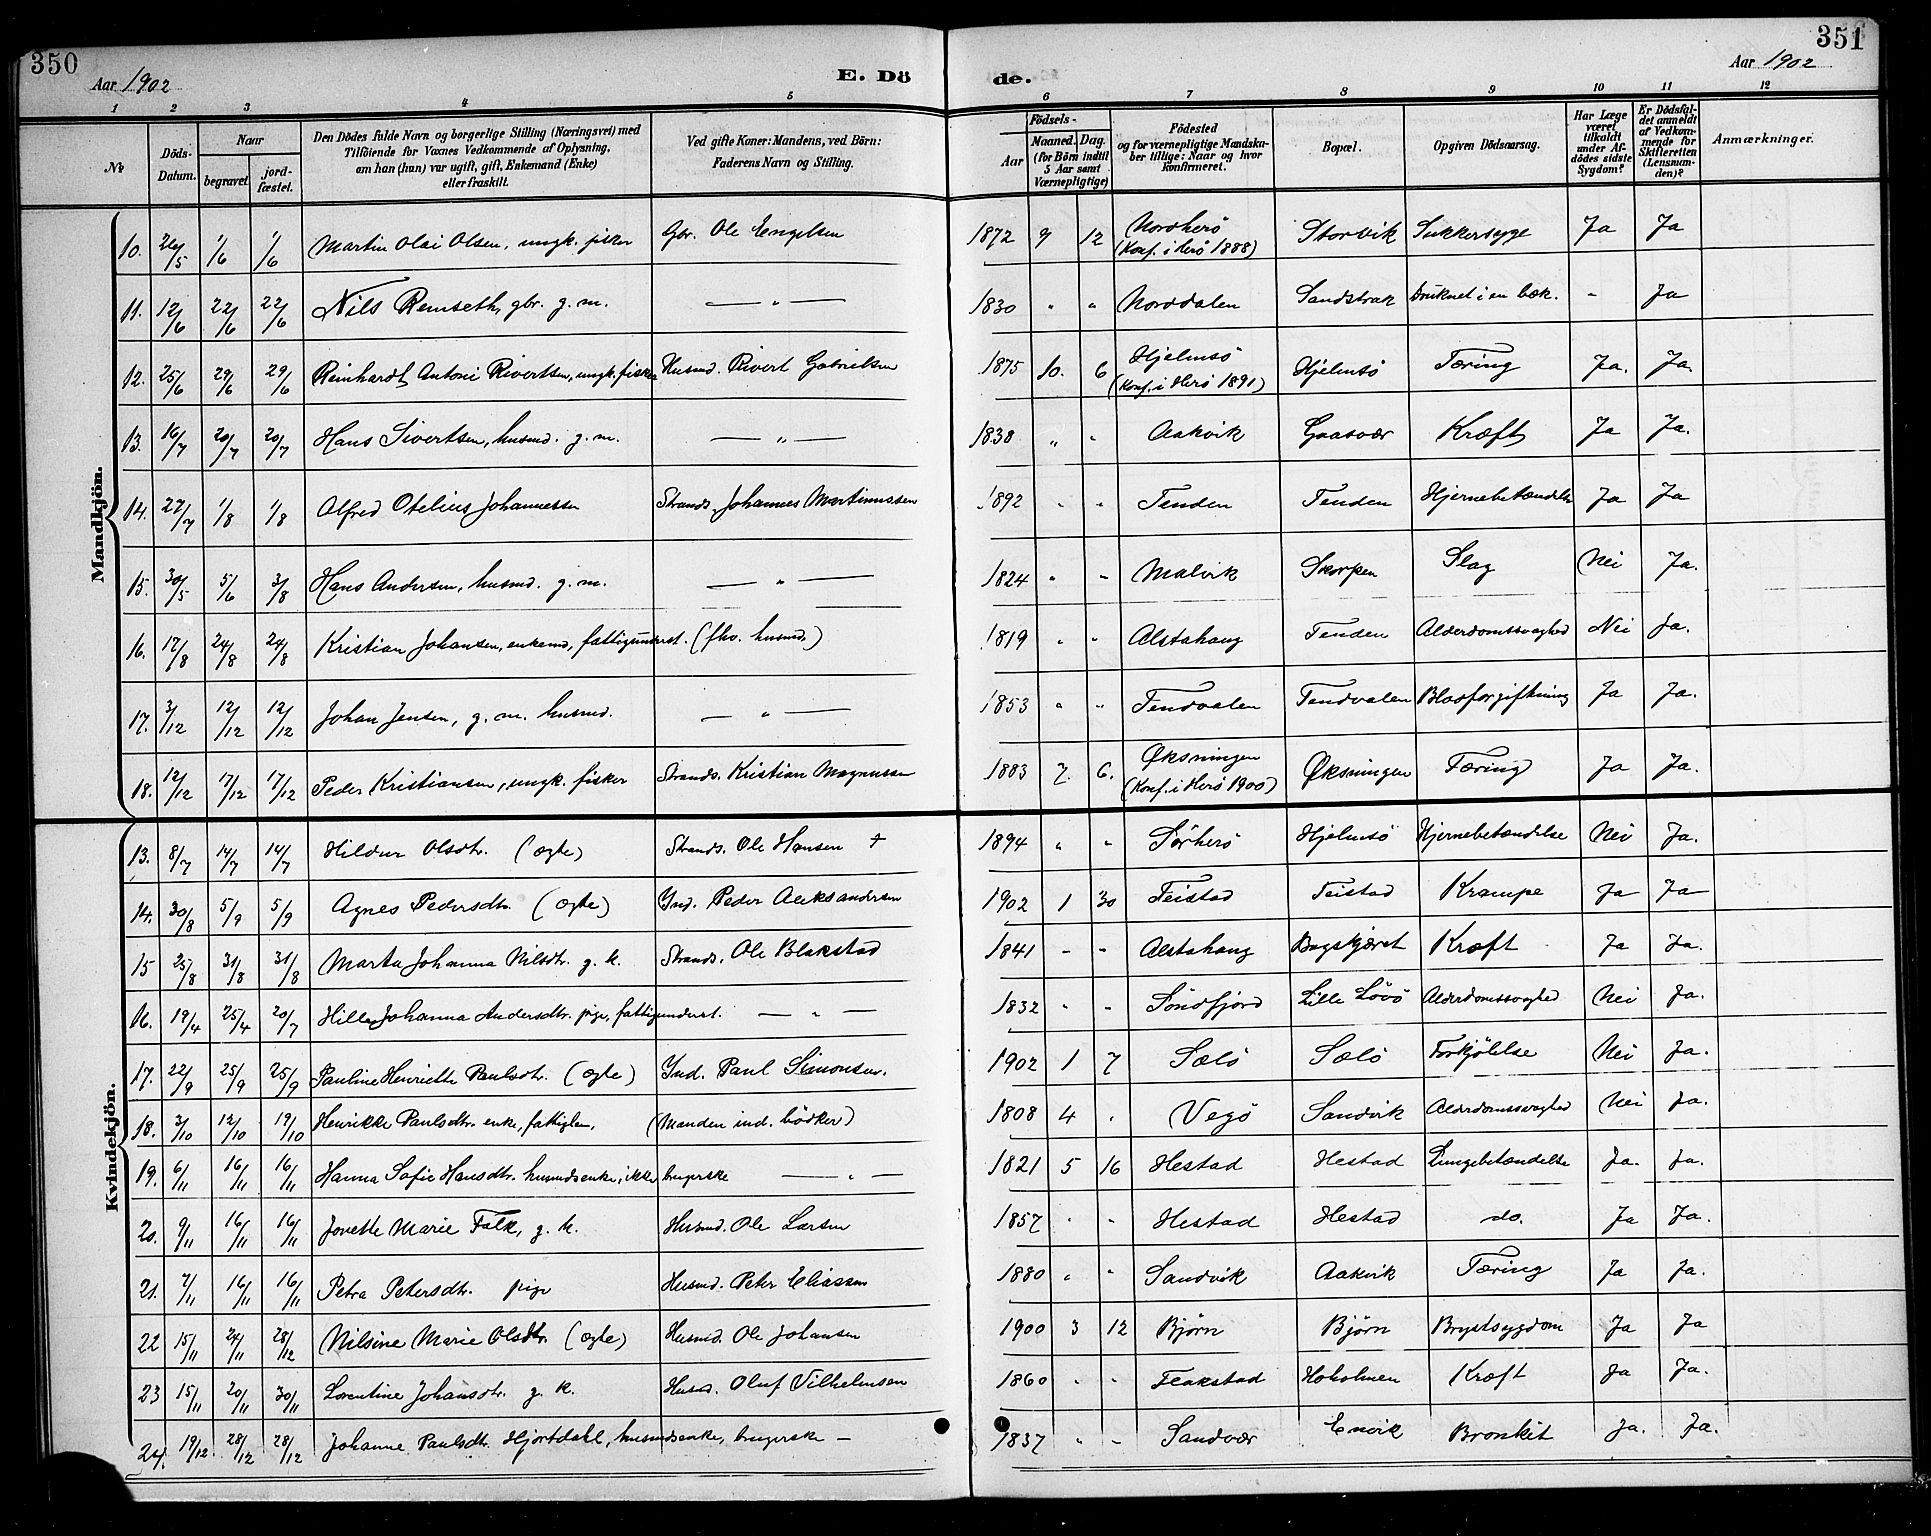 350
351
Aar 1902
E. Dö
de.
Aar 1902
1 2 3 4 5 6 7 8 9 10 11 12
№
Döds-Datum.
Naar
begravet.
jord-fæstet.
Den Dödes fulde Navn og borgerlige Stilling (Næringsvei) med
Tilföiende for Voxnes Vedkommende af Oplysning,
om han (hun) var ugift, gift, Enkemand (Enke)
eller fraskilt.
Ved gifte Koner: Mandens, ved Börn:
Faderens Navn og Stilling.
Födsels-
Aar
Maaned. Dag.
(for Börn indtil
5 Aar samt
Værnepligtige)
Födested
og for værnepligtige Mandska-
ber tillige: Naar og hvor
konfirmeret.
Bopæl.
Opgiven Dödsaarsag.
Har Læge
været
tilkaldt
under Af-
dödes sidste
Sygdom?
Er Dödsfal-
det anmeldt
af Vedkom-
mende for
Skifteretten
(Lensman-
den)?
Anmærkninger.
Mandkjön.
10. 26/5 1/6 1/6 Martin Olai Olsen, ungk. fisker Gbr. Ole Engelsen 1872 9 12 Nordherö (Konf. i Herö 1888) Storvik Sukkersyge Ja Ja
11. 12/6 22/6 22/6 Nils Remseth, gbr. g. m. — " — 1830 " " Norddalen Sandstrak Druknet i en bæk. - Ja
12. 25/6 29/6 29/6 Reinhardt Antoni Sivertsen, ungk. fisker Husmd. Sivert Gabrielsen 1875 10. 6 Hjelmsö (Konf. i Herö 1891) Hjelmsö Tæring Ja. Ja.
13. 16/7 20/7 20/7 Hans Sivertsen, husmd. g. m. — " — 1838 " " Aakvik Gaasvær Kræft Ja Ja.
14. 27/7 1/8 1/8 Alfred Otelius Johannessen Strands. Johannes Martinussen 1892 " " Tenden Tenden Hjernebetændelse Ja Ja
15. 30/5 5/6 3/8 Hans Andersen, husmd. g. m. — " — 1824 " " Malvik Skorpen Slag Nei Ja.
16. 17/8 24/8 24/8 Kristian Johansen, enkemd, fattigunderst. (fhv. husmd.) 1819 " " Alstahaug Tenden Alderdomssvaghed Nei Ja.
17. 3/12 12/12 12/12 Johan Jensen, g. m. husmd. — " — 1853 " " Tendvalen Tendvalen Blodforgiftning Ja Ja.
18. 12/12 17/12 17/12 Peder Kristiansen, ungk. fisker Strands. Kristian Magnussen 1883 7. 6. Øksningen (Konf. i Herö 1900) Øksningen Tæring Ja Ja.
Kvindekjön.
13. 8/7 14/7 14/7 Hildur Olsdtr. (ægte) Strands. Ole Hansen † 1894 " " Sörherö Hjelmsö Hjernebetændelse Nei Ja.
14. 30/8 5/9 5/9 Agnes Pedersdtr. (ægte) Ind. Peder Aleksandersen 1902 1 30 Teistad Teistad Krampe Ja Ja
15 25/8 31/8 31/8 Marta Johanna Nilsdtr. g. k. Strands. Ole Blakstad 1841 - - Alstahaug Bagskjæret Kræft Ja Ja.
16. 19/4 25/4 20/7 Hille Johanna Andersdtr. pige, fattigunderst. — " — 1832 " " Söndfjord Lille Lövö Alderdomssvaghed Nei Ja.
17. 22/9 25/9 25/9 Pauline Henriette Paulsdtr. (ægte) Ind. Paul Simonsen. 1902 1 7 Sælö Sælö Forkjölelse Nei Ja.
18. 3/10 12/10 19/10 Henrikke Paulsdtr. enke, fattiglem, (Manden ind. bödker) 1808 4 " Vegö Sandvik Alderdomssvaghed Nei Ja.
19. 6/11 16/11 16/11 Hanna Sofie Hansdtr. husmdsenke, ikke brugerske — " — 1821 5 16 Hestad Hestad Lungebetændelse Ja. Ja.
20. 9/11 16/11 16/11 Jonette Marie Falk, g. k. Husmd. Ole Larsen 1857 " " Hestad Hestad do. Ja Ja.
21. 7/11 16/11 16/11 Petra Petersdtr. pige Husmd. Peter Eliassen 1880 " " Sandvik Aakvik Tæring Ja Ja.
22 15/11 24/11 28/12 Nilsine Marie Olsdtr. (ægte) Husmd. Ole Johansen 1900 3 12 Bjørn Bjørn Brystsygdom Ja Ja
23 15/11 20/11 30/11 Lorentine Johansdtr. g. k. Husmd. Oluf Vilhelmsen 1860 " " Flakstad Hoholmen Kræft Ja Ja.
24. 19/12. 28/12 28/12 Johanne Paulsdtr. Hjortdahl, husmdsenke, brugerske — 1837 " - Sandvær Envik Bronkit Ja. Ja.